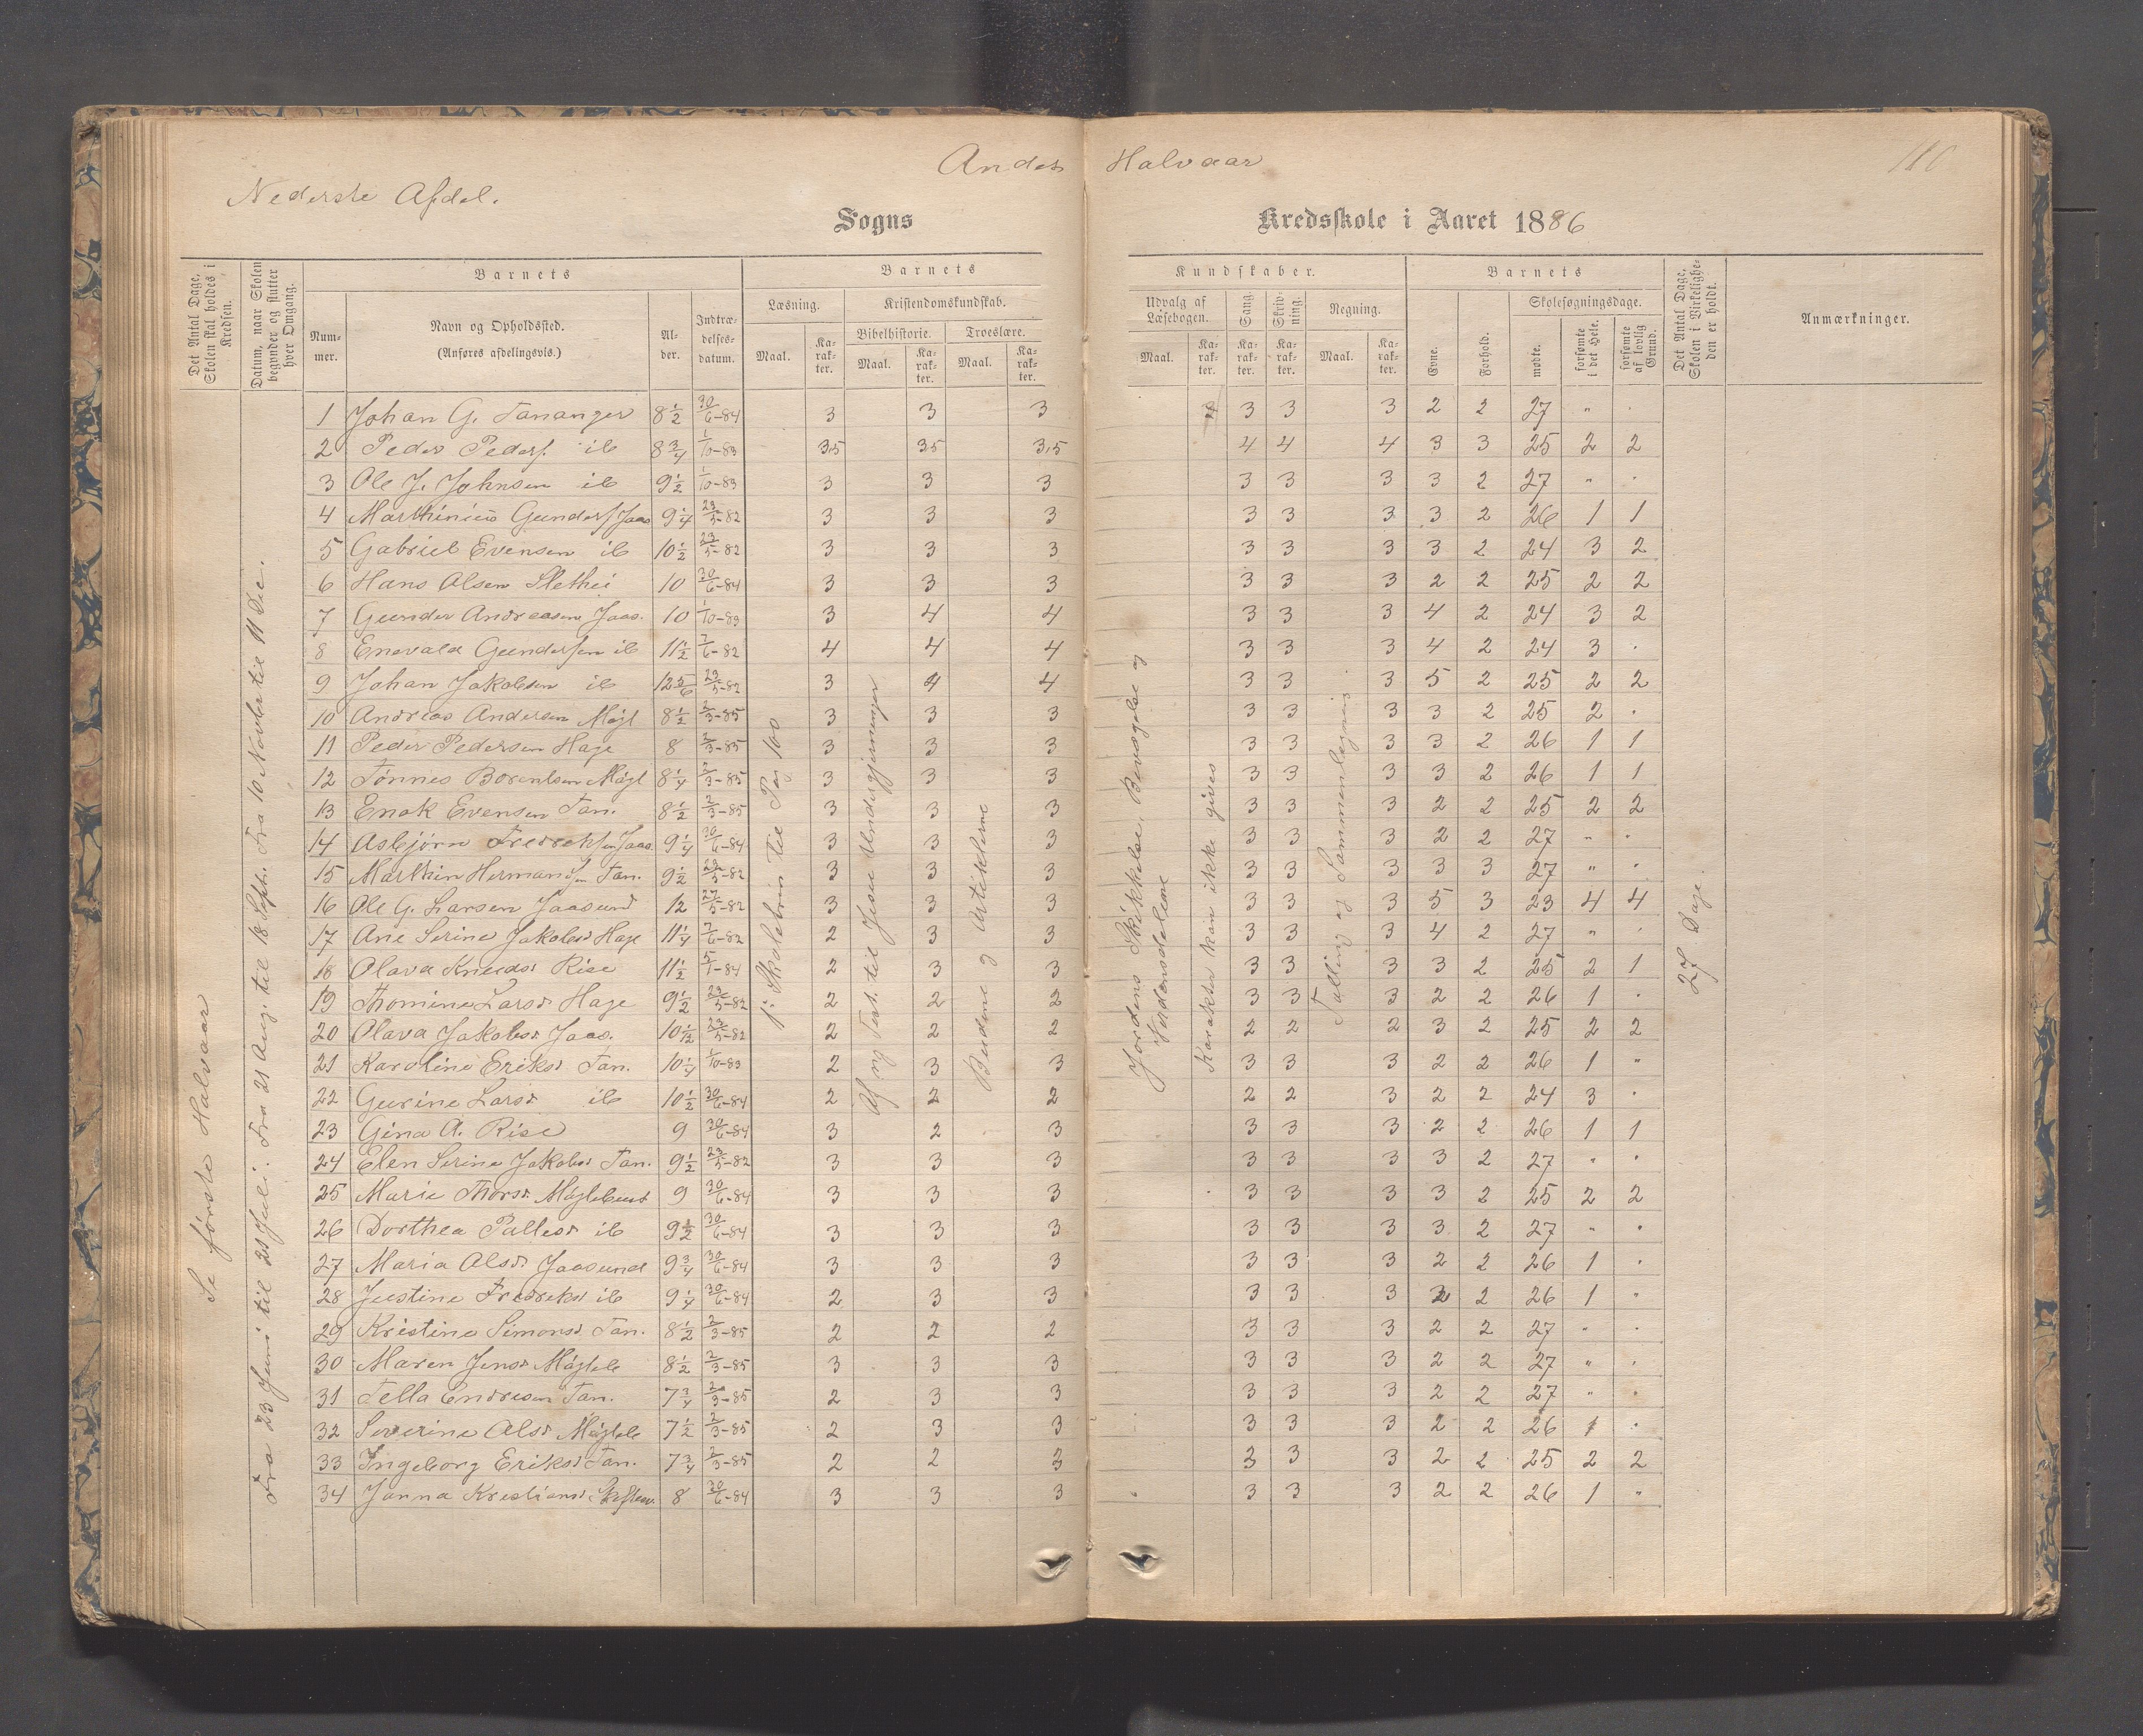 Andet Halvaar
110
Nederste Afdel.
Sogns Kredsskole i Aaret 1886
Det Antal Dage, Skolen skal holdes i Kredsen.
Datum, naar Skolen begynder og slutter hver Omgang.
Barnets
Num-mer.
Navn og Opholdssted.
(Anføres afdelingsvis.)
Al-der.
Indtræ-delses-datum.
Barnets Kundskaber.
Læsning.
Maal.
Ka-rak-ter.
Kristendomskundskab.
Bibelhistorie.
Maal.
Ka-rak-ter.
Troeslære.
Maal.
Ka-rak-ter.
Udvalg af Læsebogen.
Maal.
Ka-rak-ter.
Sang.
Ka-rak-ter.
Skriv-ning.
Ka-rak-ter.
Regning.
Maal.
Ka-rak-ter.
Barnets
Evne.
Forhold.
Skolesøgningsdage.
mødte.
forsømte i det Hele.
forsømte af lovlig Grund.
Det Antal Dage, Skolen i Virkelighe-den er holdt.
Anmærkninger.
Se første Halvaar
Fra 23 Juni til 21 Juli. Fra 21 Aug. til 18 Sept. Fra 10 Novbr til 11 Dec.
1 Johan G. Tananger 8 1/2 30/6-84 3 3 3 3 3 3 2 2 27 " .
2 Peder Peders. ib 8 3/4 1/10-83 3,5 3,5 3,5 4 4 4 3 3 25 2 2
3 Ole J. Johnsen ib 9 1/2 1/10-83 3 3 3 3 3 3 3 2 27 " .
4 Marthinius Gunders. Jaas 9 1/4 23/5-82 3 3 3 3 3 3 3 2 26 1 1
5 Gabriel Evensen ib 10 1/2 23/5-82 3 3 3 3 3 3 3 2 24 3 2
6 Hans Olsen Slethei 10 30/6-84 3 3 3 3 3 3 2 2 25 2 2
7 Gunder Andreasen Jaas. 10 1/10-83 3 4 4 3 3 3 4 2 24 3 2
8 Enevald Gundersen ib 11 1/2 7/6-82 4 4 4 3 3 3 4 2 24 3 .
9 Johan Jakobsen ib 12 5/6 23/5-82 3 4 4 3 3 3 5 2 25 2 2
10 Andreas Andersen Møgl 8 1/2 2/3-85 3 3 3 3 3 3 3 2 25 2 .
11 Peder Pedersen Hage 8 2/3-85 3 3 3 3 3 3 3 2 26 1 1
12 Tønnes Berentsen Møgl 8 1/4 2/3-85 3 3 3 3 3 3 3 2 26 1 1
13 Enok Evensen Tan. 8 1/2 2/3-85 3 3 3 3 3 3 2 2 25 2 2
14 Asbjørn Fredreksen Jaas 9 1/4 30/6-84 3 3 3 3 3 3 2 2 27 " .
15 Marthin Hermansen Tan. 9 1/2 23/5-82 3 3 3 3 3 3 3 3 27 " .
16 Ole G. Larsen Jaasund 12 23/5-82 3 3 3 3 3 3 5 3 23 4 4
17 Ane Serine Jakobsd Hage 11 1/4 7/6-82 2 3 3 3 3 3 4 2 27 " .
18 Olava Knudsd Rise 11 1/2 5/1-84 2 3 3 3 3 3 3 2 25 2 1
19 Thomine Larsd Hage 9 1/2 23/5-82 2 2 2 3 3 3 2 2 26 1 .
20 Olava Jakobsd Jaas. 10 1/12 23/5-82 2 2 2 2 2 2 3 2 25 2 2
21 Karoline Eriksd Tan. 10 1/4 1/10-83 2 3 3 3 3 3 2 2 26 1 "
22 Gurine Larsd ib 10 1/2 30/6-84 2 2 2 2 2 3 2 2 24 3 .
23 Gina A. Rise 9 30/6-84 3 2 3 3 3 3 2 2 26 1 1
24 Elen Serine Jakobsd Tan. 9 1/2 23/5-82 3 3 3 3 3 3 3 2 27 " "
25 Marie Thorsd. Møglebust 9 30/6-84 3 3 3 3 3 3 3 2 25 2 2
26 Dorthea Pallesd ib 9 1/2 30/6-84 3 3 3 3 3 3 3 2 27 " .
27 Maria Olsd Jaasund 9 3/4 30/6-84 3 3 3 3 3 3 2 2 26 1 .
28 Justine Fredreksd ib 9 1/4 30/6-84 2 3 3 3 3 3 2 2 26 1 "
29 Kristine Simonsd. Tan. 8 1/2 2/3-85 2 2 2 3 3 3 2 2 27 " .
30 Maren Jensd Mögleb 8 1/2 2/3-85 3 3 3 3 3 3 2 2 27 " .
31 Tella Endresen Tan. 7 3/4 2/3-85 2 3 3 3 3 3 2 2 27 " .
32 Severine Olsd Mögleb 7 1/2 2/3-85 2 3 3 3 3 3 2 2 26 1 .
33 Ingeborg Eriksd Tan. 7 3/4 2/3-85 2 2 2 3 3 3 2 2 25 2 2
34 Janna Kristiansd 8 30/6-84 3 3 3 3 3 3 2 2 26 1 "
i Skolebrin til Pag 100
Af ny Test. til Jesu Undergjerninger
Budene og Artiklerne
Jordens Skikkelse, Bevægelse og Verdensdelene
Karakter kan ikke gives
Talling og Sammenlegning.
27 Dage.